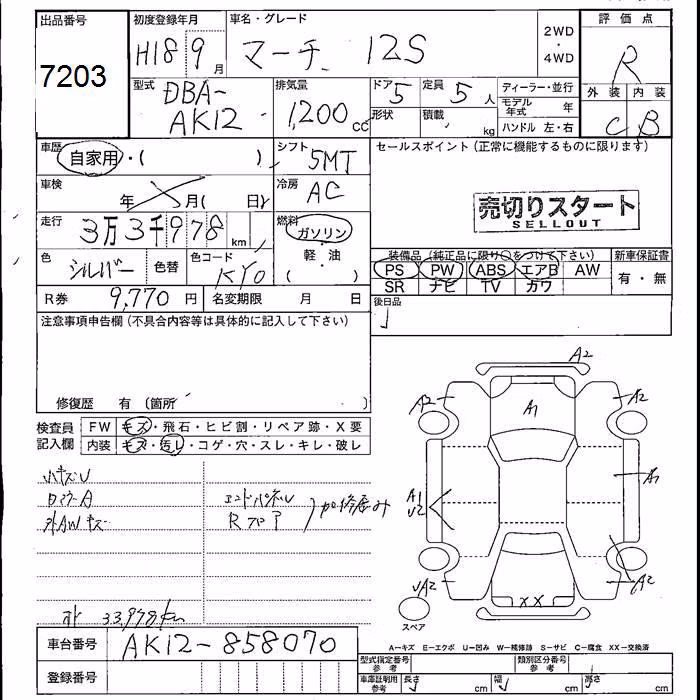 出品番号
7203
初度登録年月
H18 9月
車名・グレード
マーチ 12S
2WD・4WD
評価点
R
外装 内装
C B
型式
DBA-
AK12
排気量
1,200cc
ドア 5
定員 5人
形状
積載 kg
ディーラー・並行
モデル年式 年
ハンドル 左・右
車歴
自家用・( )
シフト
5MT
セールスポイント(正常に機能するものに限ります)
車検
年 月( 日)
冷房
AC
売切りスタート
SELLOUT
走行
3万3千978km
燃料
ガソリン
軽・油
( )
色
シルバー
色替
色コード
KY0
装備品(純正品に限り○をつけて下さい)
PS PW ABS エアB AW
SR ナビ TV カワ
新車保証書
有・無
R券 9,770円
名変期限 月 日
後日品
注意事項申告欄(不具合内容等は具体的に記入して下さい)
修復歴 有 (箇所 )
検査員
記入欄
FW キズ・飛石・ヒビ割・リペア跡・X要
内装 キズ・汚レ・コゲ・穴・スレ・キレ・破レ
エンドパネル
Rフロア
加修歴み
外AWキズ
33,978km
A2
A2
A1
A2
A1
A1
U2
A2
A2
XX
スペア
A−キズ E−エクボ U−凹み W−補修跡 S−サビ C−腐食 XX−交換済
車台番号
AK12-858070
登録番号
型式指定番号
参考
類別区分番号
参考
車庫証明用
参考
長さ cm
幅 cm
高さ cm